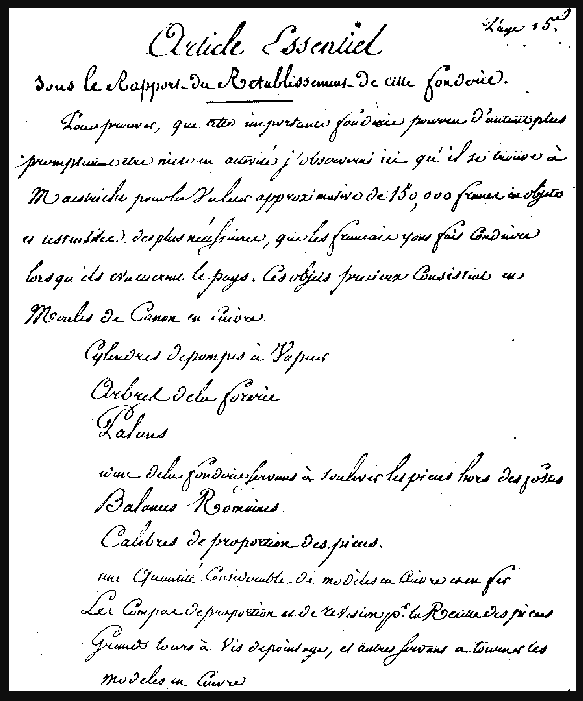 Page 15e
Article Essentiel
sous le Rapport du Retablissement de cette fonderie.
Pour prouver, que cette importante fonderie pourra d'autant plus
promptement etre mise en activité j'observerai ici qu'il se trouve à
Maestricht pour la Valeur approximative de 150,000 francs en objets
et ustensiles des plus nécessaires, que les francais y ont fait Conduire
lorsqu'ils evacuerent le pays. Ces objets precieux Consistent en
Moules de Canon en cuivre
Cylendres de pompes à Vapeur
Arbres de la forerie
Palans
de la fonderie servant à soulever les pieces hors des fosses
Balances Romaines
Calibres de proportion des pieces.
une Quantité Considerable de modèles en Cuivre et en fer
Les Compas de proportion et de revision pr. la Recette des pieces
Grands tours à Vis de pointage, et autres servant a tourner les
modeles en Cuivre